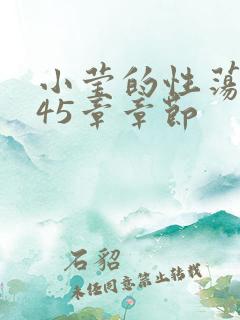 小莹的性荡
45章章节
石貂
未经同意禁止转载